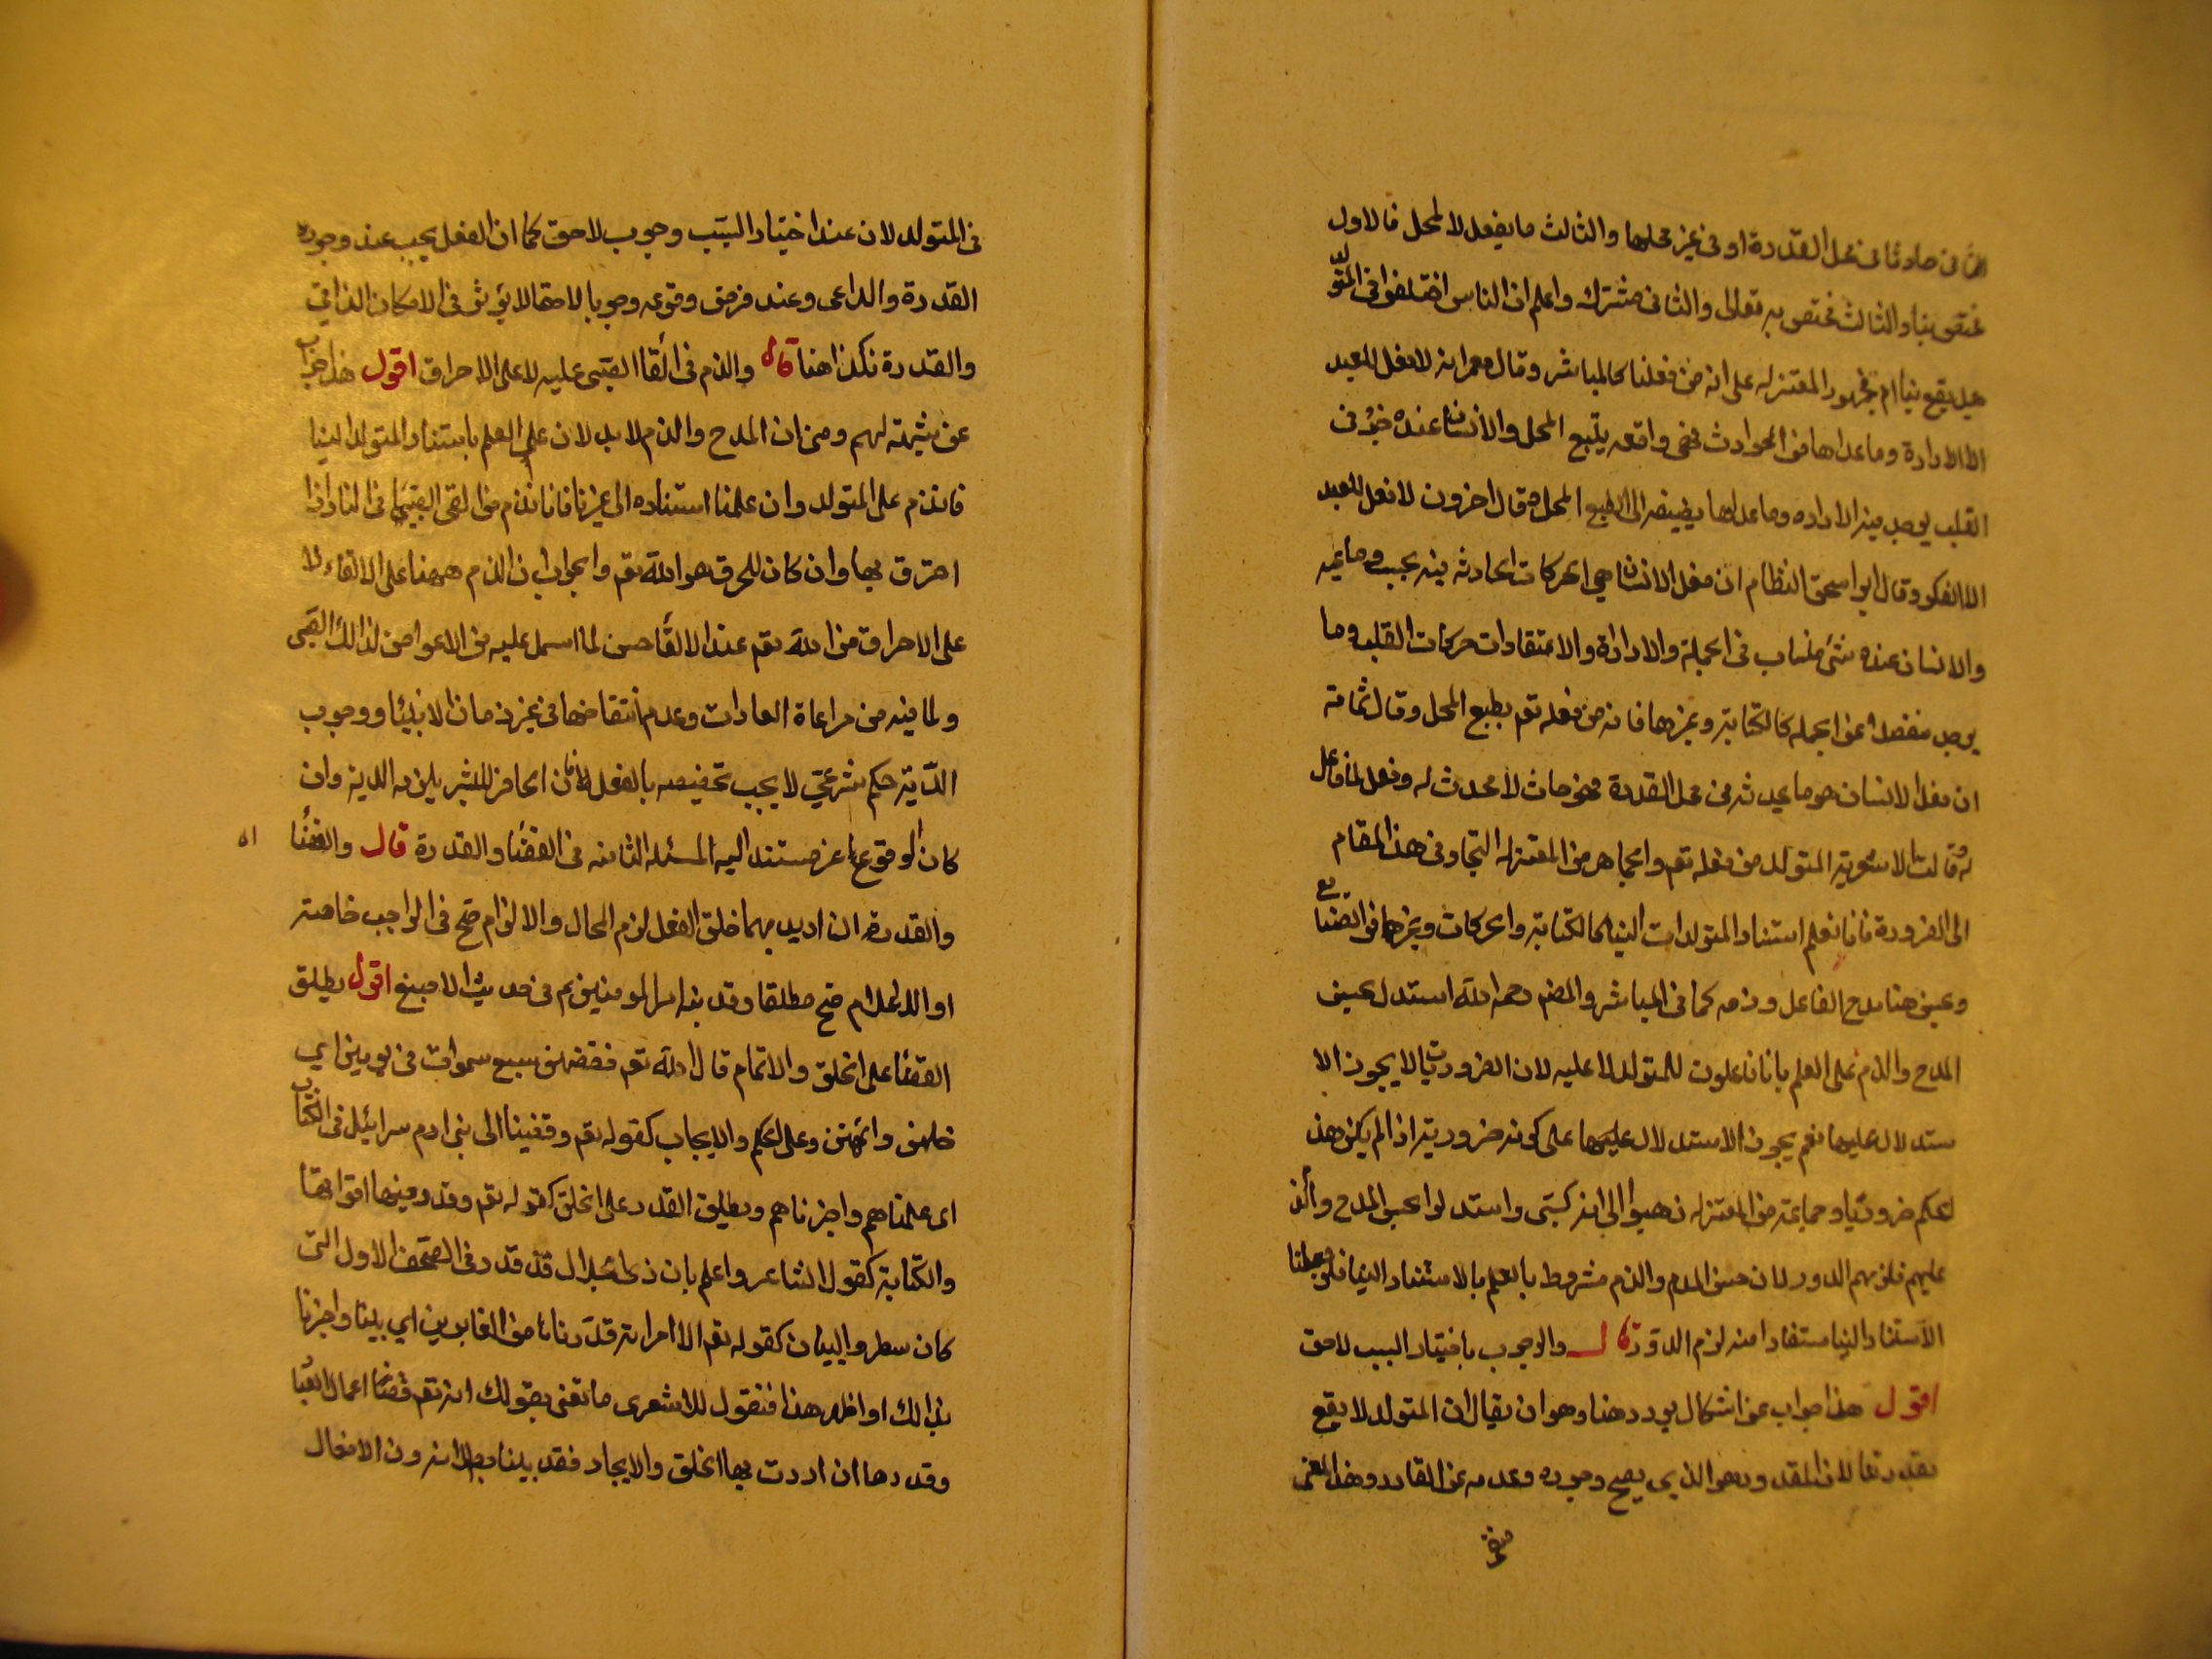 الثانی حادثا فی محل القدرة او فی غیر محلها والثالث ما یفعل لا لمحل فالاول
مختص بنا والثالث مختص به تعالی والثانی مشترك واعلم ان الناس اختلفوا فی المتولد
هل یقع بنا ام فجمهور المعتزله علی انه من فعلنا کالمباشر وقال معمر انه لا فعل للعبد
الا الارادة وما عداها من الحوادث فهی واقعه بتبع المحل والانسان عنده جزء فی
القلب یوجد منه الاراده وما عداها یضیفه الی طبع المحل وقال اخرون لا فعل للعبد
الا الفکر وقال ابو اسحق النظام ان فعل الانسان هی الحرکات الحادثه فیه بحسب دواعیه
والانسان عنده شئ منساب فی الجملة والارادة والاعتقادات حرکات القلب وما
یوجد منفصلا عن الجمله کالکتابة وغیرها فانه من فعله تع بطبع المحل وقال ثمامة
ان فعل الانسان هو ما یحدثه فی محل القدرة فهو حادث لا محدث له وفعل لا فاعل
له وقالت الاشعریة المتولد من فعله تع والجماهر من المعتزله التجاو فی هذا المقام
الی الضرورة فانا نعلم استناد المتولدات الینا کالکتابة والحرکات وغیرها من الصنایع
وحسن هنا مدح الفاعل وذمه کما فی المباشر والمصنف رحمه الله استدل بحسن
المدح والذم علی العلم بانا فاعلون للمتولد لا علیه لان الضروریات لا یجوز الا
ستدلال علیها نعم یجوز الاستدلال علیها علی کونه ضروریة اذا لم یکن هذا
الحکم ضروریا وجماعة من المعتزله ذهبوا الی انه کسبی واستدلوا بحسن المدح والذم
علیهم فلزمهم الدور لان حسن المدح والذم مشروط بالعلم بالاستناد الینا فلو جعلنا
الاستناد الینا مستفادا منه لزم الدور قال والوجوب باختیار السبب لاحق
اقول هذا جواب عن اشکال یورد هنا وهو ان یقال ان المتولد لا یقع
بقدرتنا لان المقدور هو الذی یصح وجوده وعدمه عن القادر وهذا المعنی
منفی
فی المتولد لان عند اختیار السبب وجوب لاحق کما ان الفعل یجب عند وجود
القدرة والداعی وعند فرض وقوعه وجوبا لاحقا لا یؤثر فی الامکان الذاتی
والقدرة فکذا هنا قال والذم فی القا الصبی علیه لا علی الاحراق اقول هذا جواب
عن شبهة لهم وهی ان المدح والذم لا یدلان علی العلم باستناد المتولد الینا
فانا نذم علی المتولد وان علمنا استناده الی غیرنا فانا نذم من القی الصبی فی النار اذا
احترق بها وان کان المحرق هو الله تع والجواب ان الذم ههنا علی الالقاء لا
علی الاحراق من الله تع عند الالقا حسن لما اشتمل علیه من الاعواض لذلك الصبی
ولما فیه من مراعاة العادات وعدم انتقاضها فی غیر زمان الانبیاء ووجوب
الدیة حکم شرعی لا یجب تخصیصه بالفعل فان الحافر للبئر یلزمه الدیة وان
کان الوقوع غیر مستند الیه المسئله الثامنه فی القضا والقدرة قال والقضا
والقدرة ان ارید بهما خلق الفعل لزم المحال والالزام صح فی الواجب خاصة
او الاعلام صح مطلقا وقد بینه امیر المومنین ع فی حدیث الاصبغ اقول یطلق
القضا علی الخلق والاتمام قال الله تع فقضهن سبع سموات فی یومین ای
خلقهن واتمهن وعلی الحکم والایجاب کقوله تع وقضینا الی بنی ادم سرائیل فی الکتاب
ای علمناهم واخبرناهم ویطلق القدر علی الخلق کقوله تع وقدر فیها اقواتها
والکتابة کقول الشاعر واعلم بان ذا الجلال قد قدر فی الصحف الاول التی
کان سطر والبیان کقوله تع الا امراته قدرنا ها من الغابرین ای بینا واخبرنا
بذالك اذا ظهر هذا فنقول للاشعری ما تعنی بقولك انه تع قضا اعمال العباد
وقدرها ان اردت بها الخلق والایجاد فقد بینا بطلانه وان الافعال